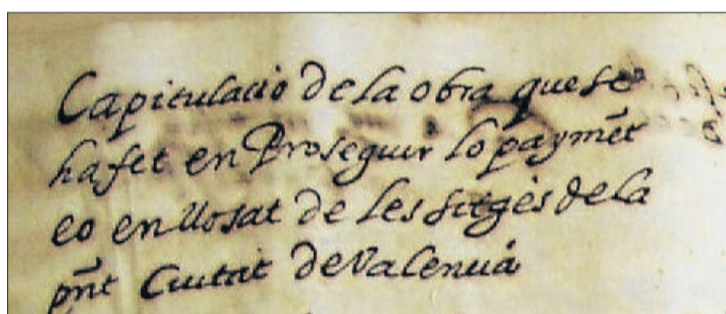 Capitulacio de la obra que se
ha fet en Proseguir lo paymẽt
eo enllosat de les sitges de la
pñt Ciutat de Valencia